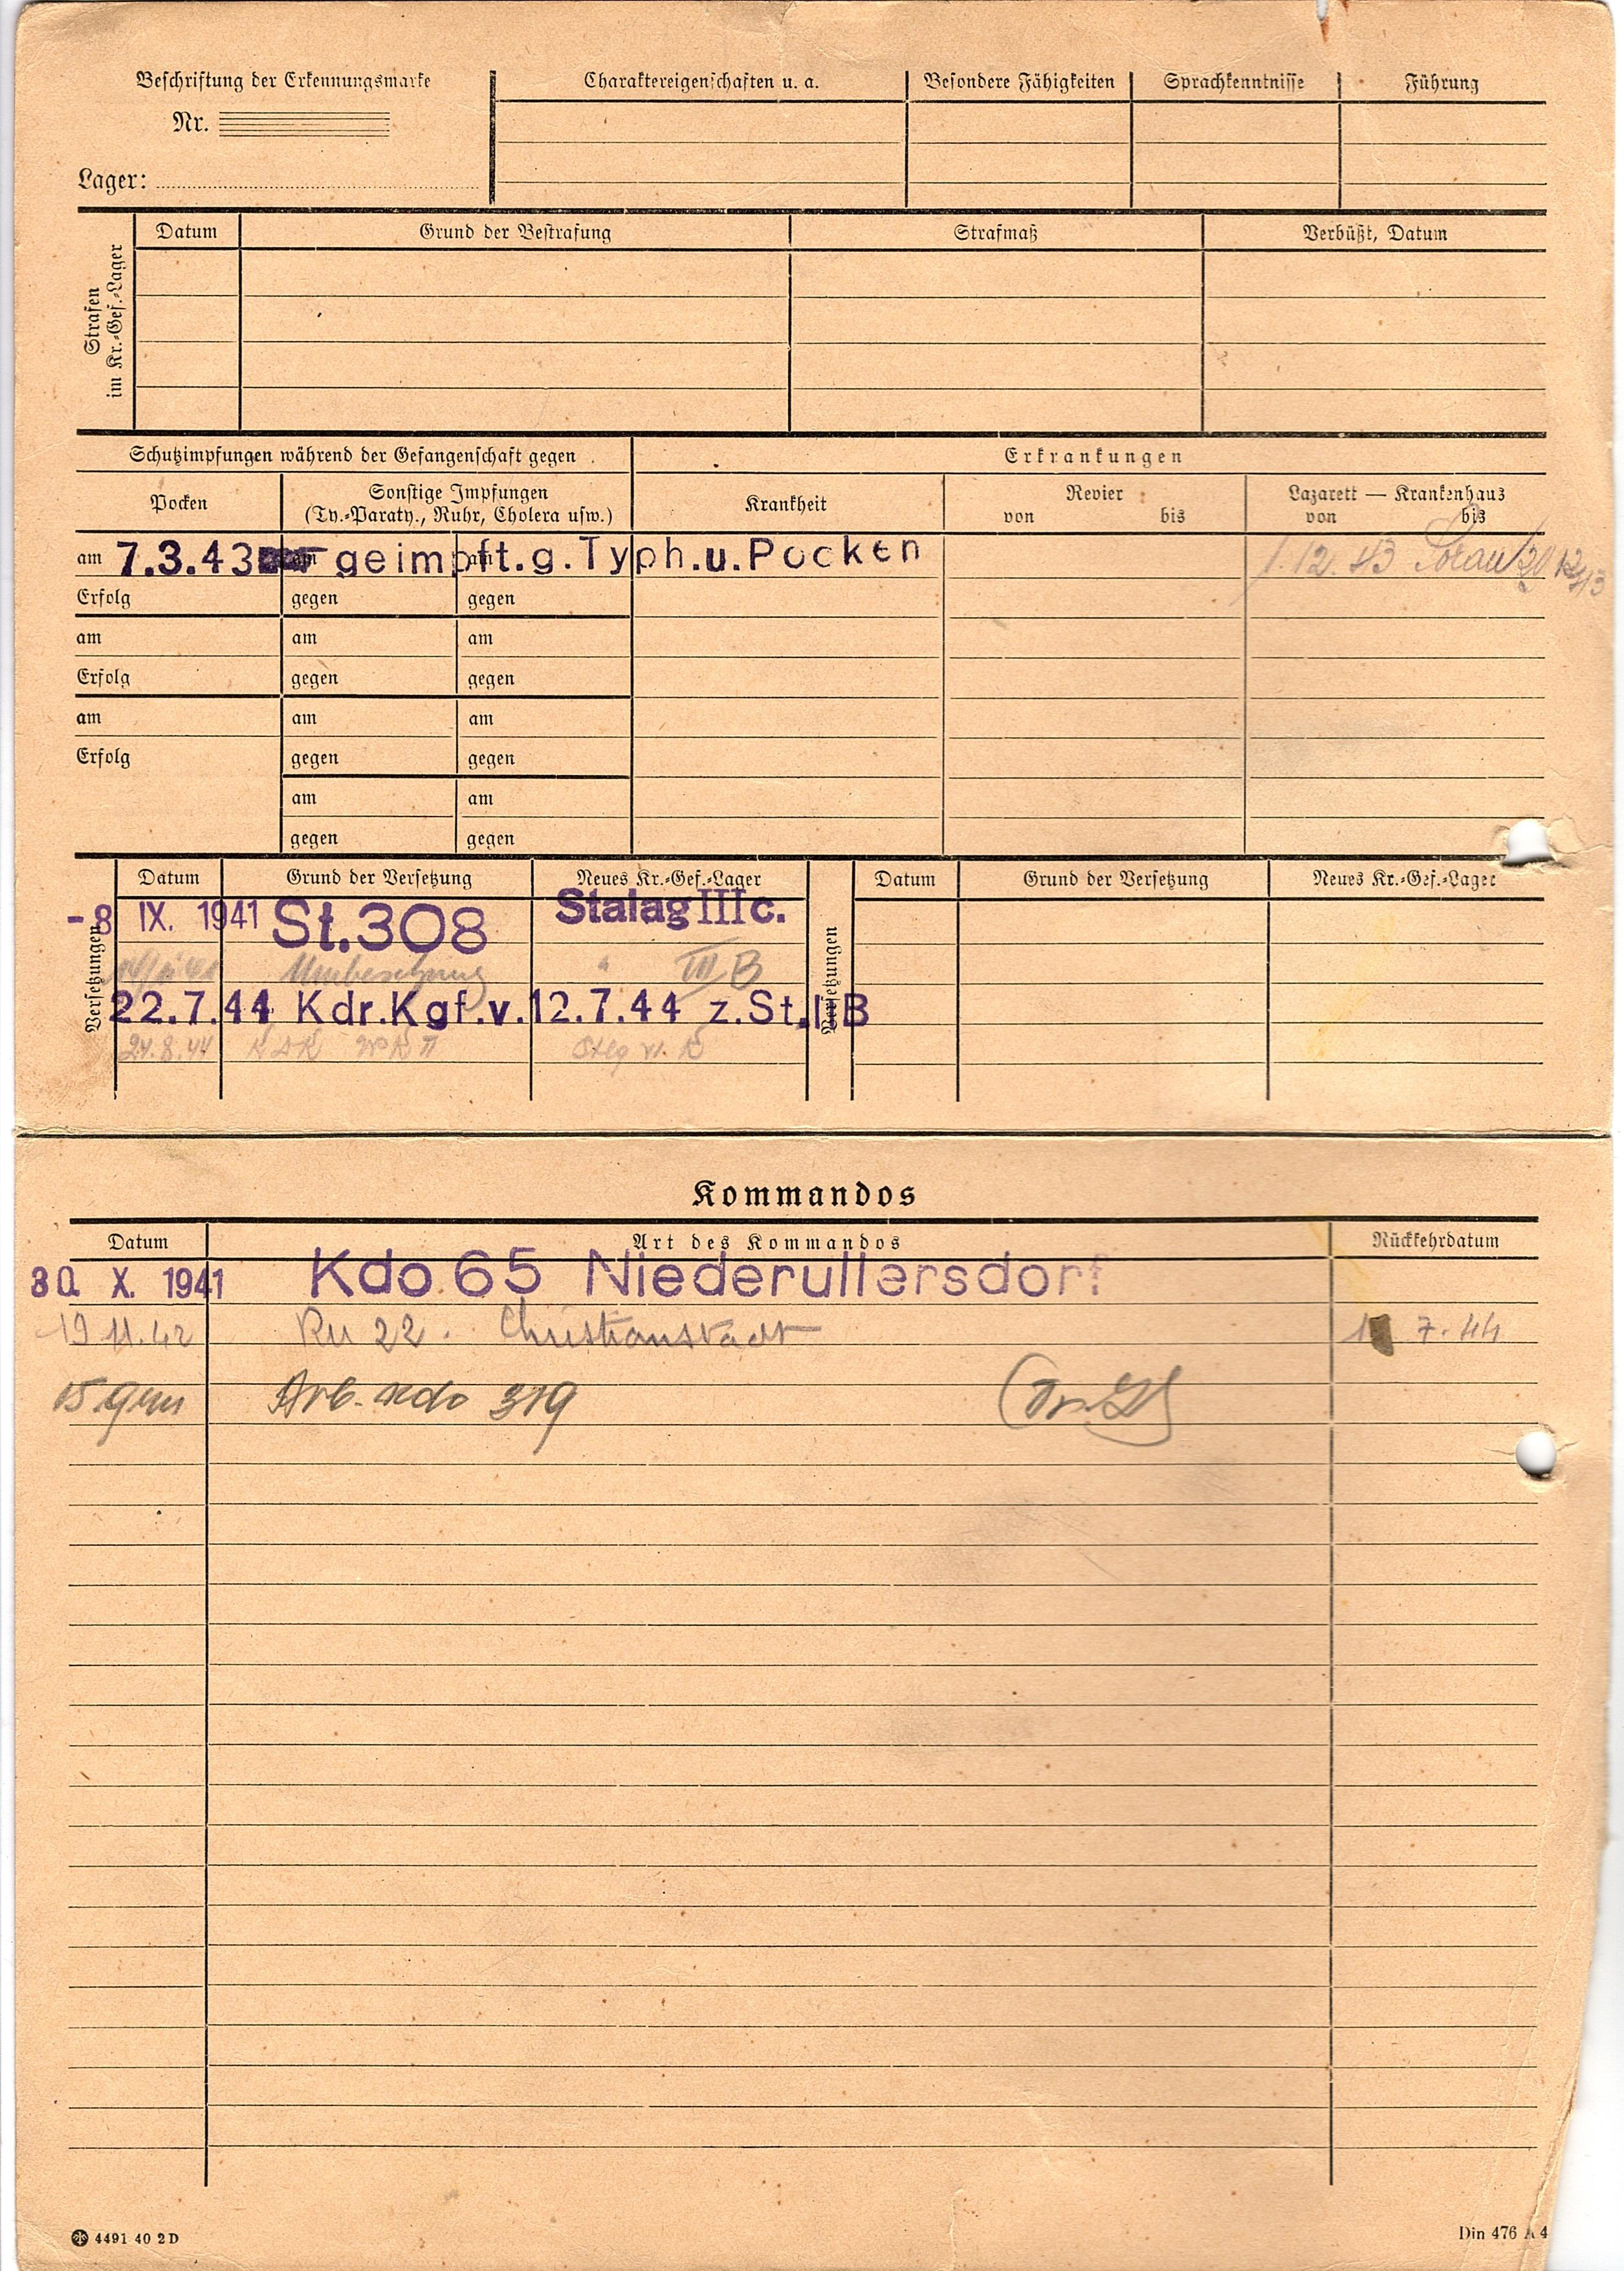 Beschriftung der Erkennungsmarke
Nr.
Lager:
Charaktereigenschaften u. a.
Besondere Fähigkeiten
Sprachkenntnisse
Führung
Strafen
im Kr.-Gef.-Lager
Datum
Grund der Bestrafung
Strafmaß
Verbüßt, Datum
Schutzimpfungen während der Gefangenschaft gegen
Erkrankungen
Pocken
Sonstige Impfungen
(Ty.-Paraty., Ruhr, Cholera usw.)
Krankheit
Revier
von bis
Lazarett — Krankenhaus
von bis
am 7.3.43 am geimpft.g.Typh.u.Pocken am
1.12.43 Sorau
Erfolg gegen gegen
am am am
Erfolg gegen gegen
am am am
Erfolg gegen gegen
am am
gegen gegen
Versetzungen
Datum Grund der Versetzung Neues Kr.-Gef.-Lager
-8 IX. 1941 St.308 Stalag III c.
" III B
22.7.44 Kdr.Kgf.v.12.7.44 z.St.I B
24.8.44
Versetzungen
Datum Grund der Versetzung Neues Kr.-Gef.-Lager
Kommandos
Datum Art des Kommandos Rückkehrdatum
30. X. 1941 Kdo 65 Niederullersdorf
19 11.42 Ru 22. Christianstadt 7.44
Arb. Kdo 319
4491 40 2 D
Din 476 A 4